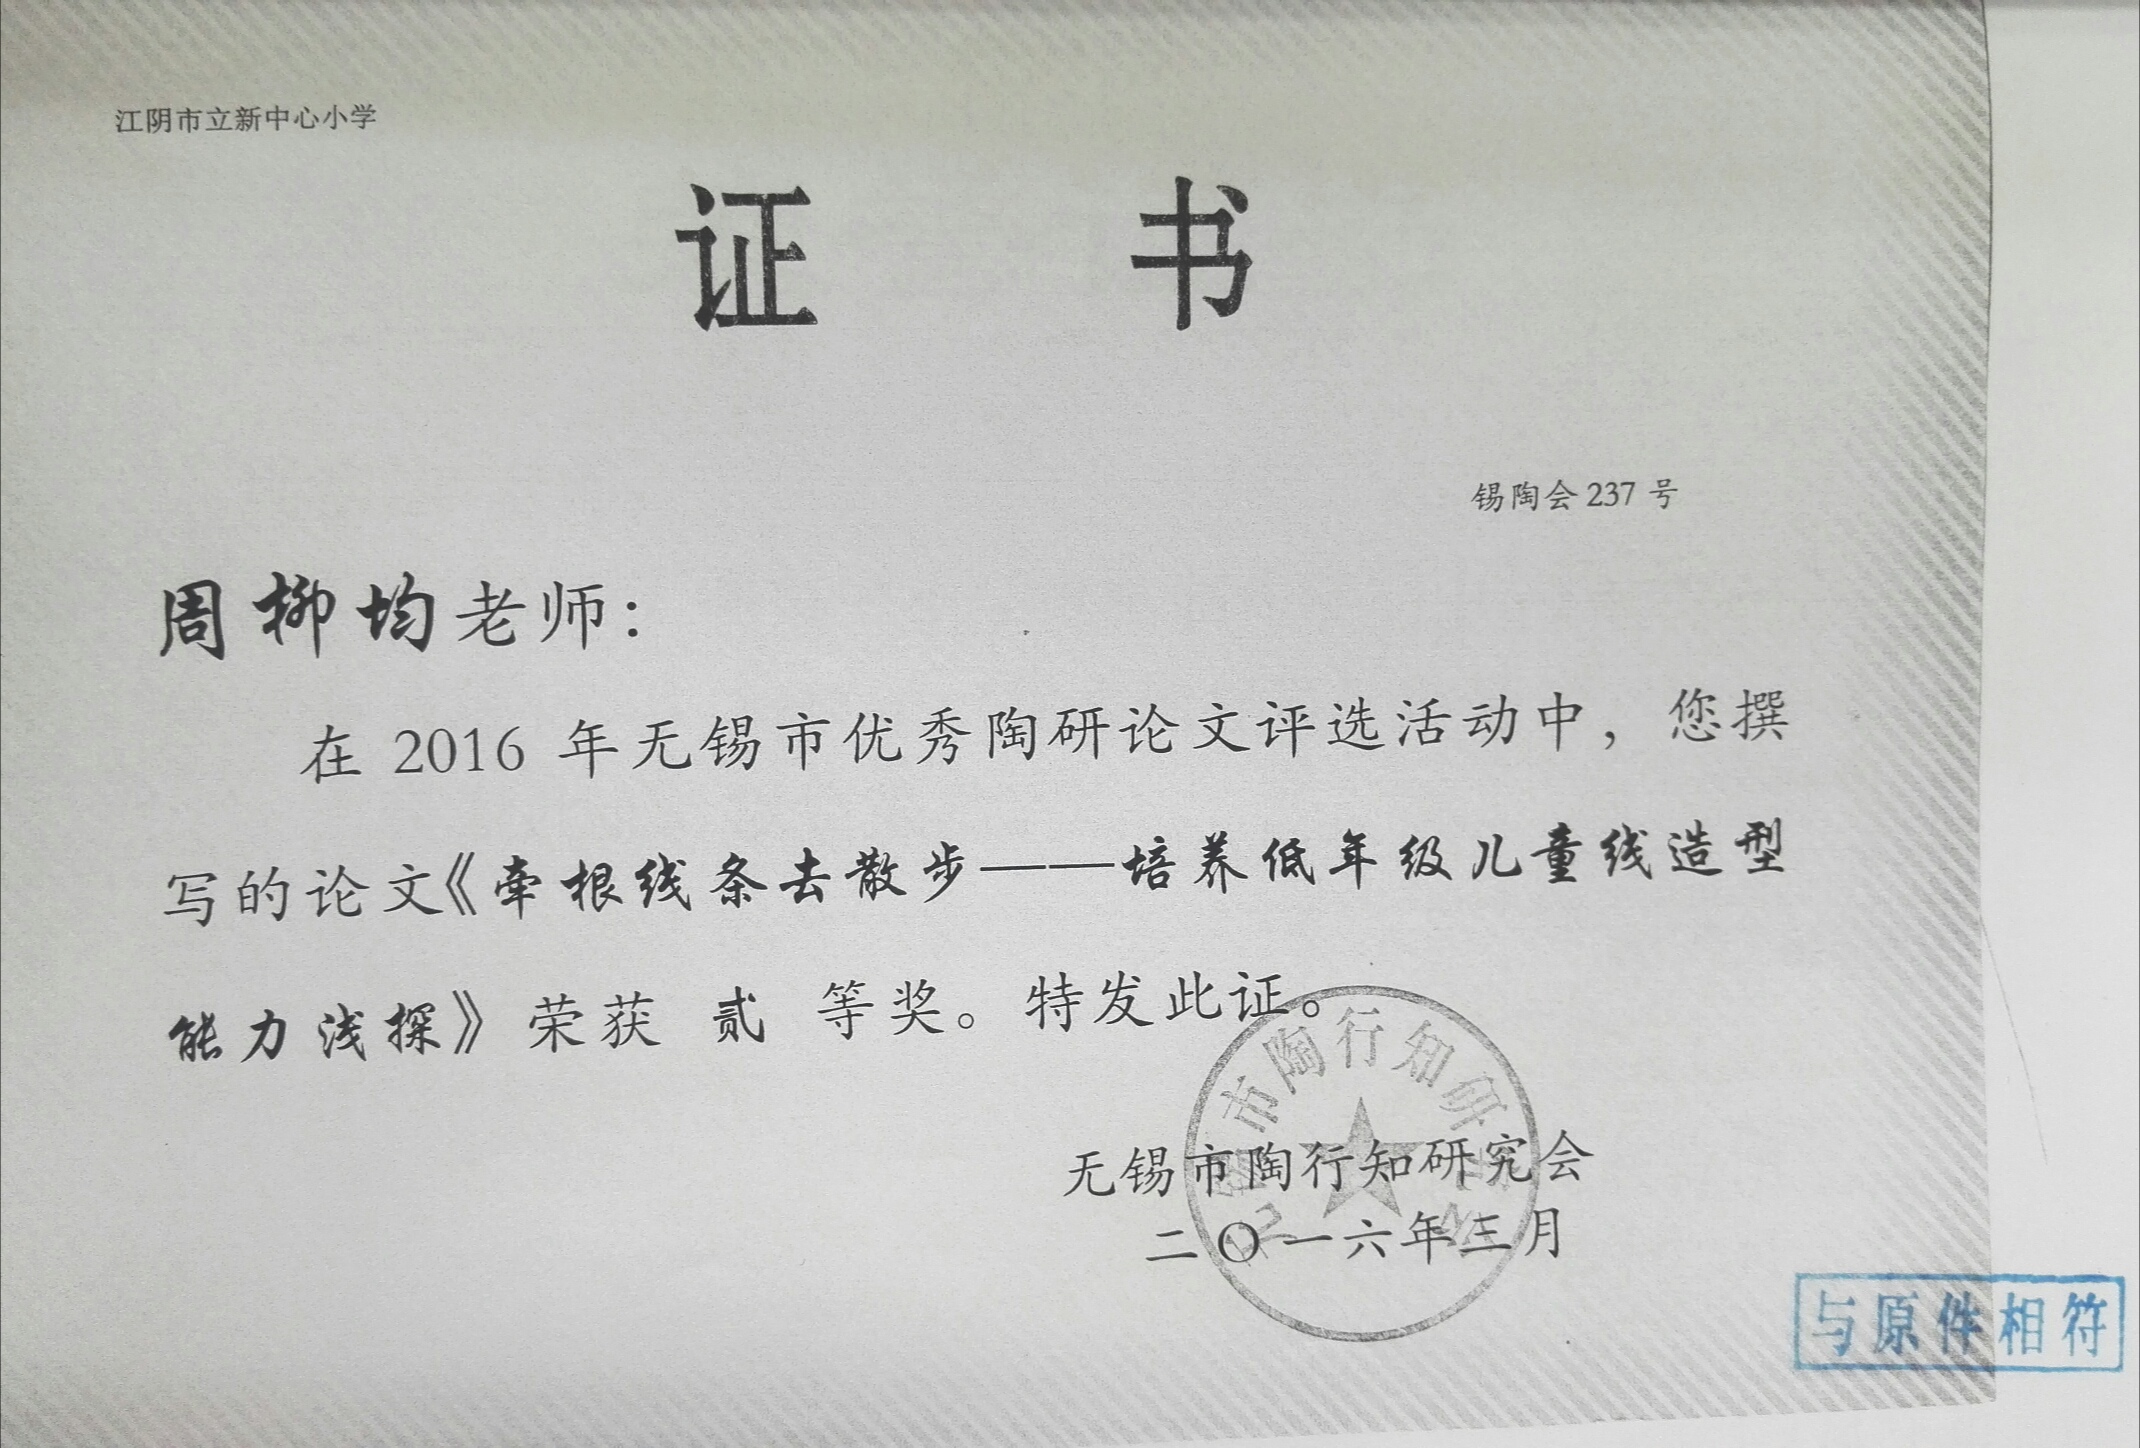 江阴市立新中心小学
证 书
锡陶会 237 号
周柳均老师：
在 2016 年无锡市优秀陶研论文评选活动中，您撰
写的论文《牵根线条去散步——培养低年级儿童线造型
能力浅探》荣获 贰 等奖。特发此证。
无锡市陶行知研究会
无锡市陶行知研究会
二〇一六年三月
与原件相符